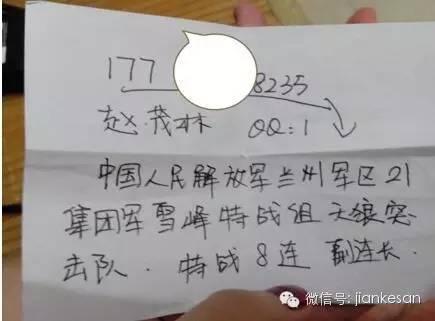 177 8235
赵茂林 QQ:1
中国人民解放军兰州军区21
集团军雪峰特战组天狼突
击队.特战8连 副连长.
微信号: jiankesan